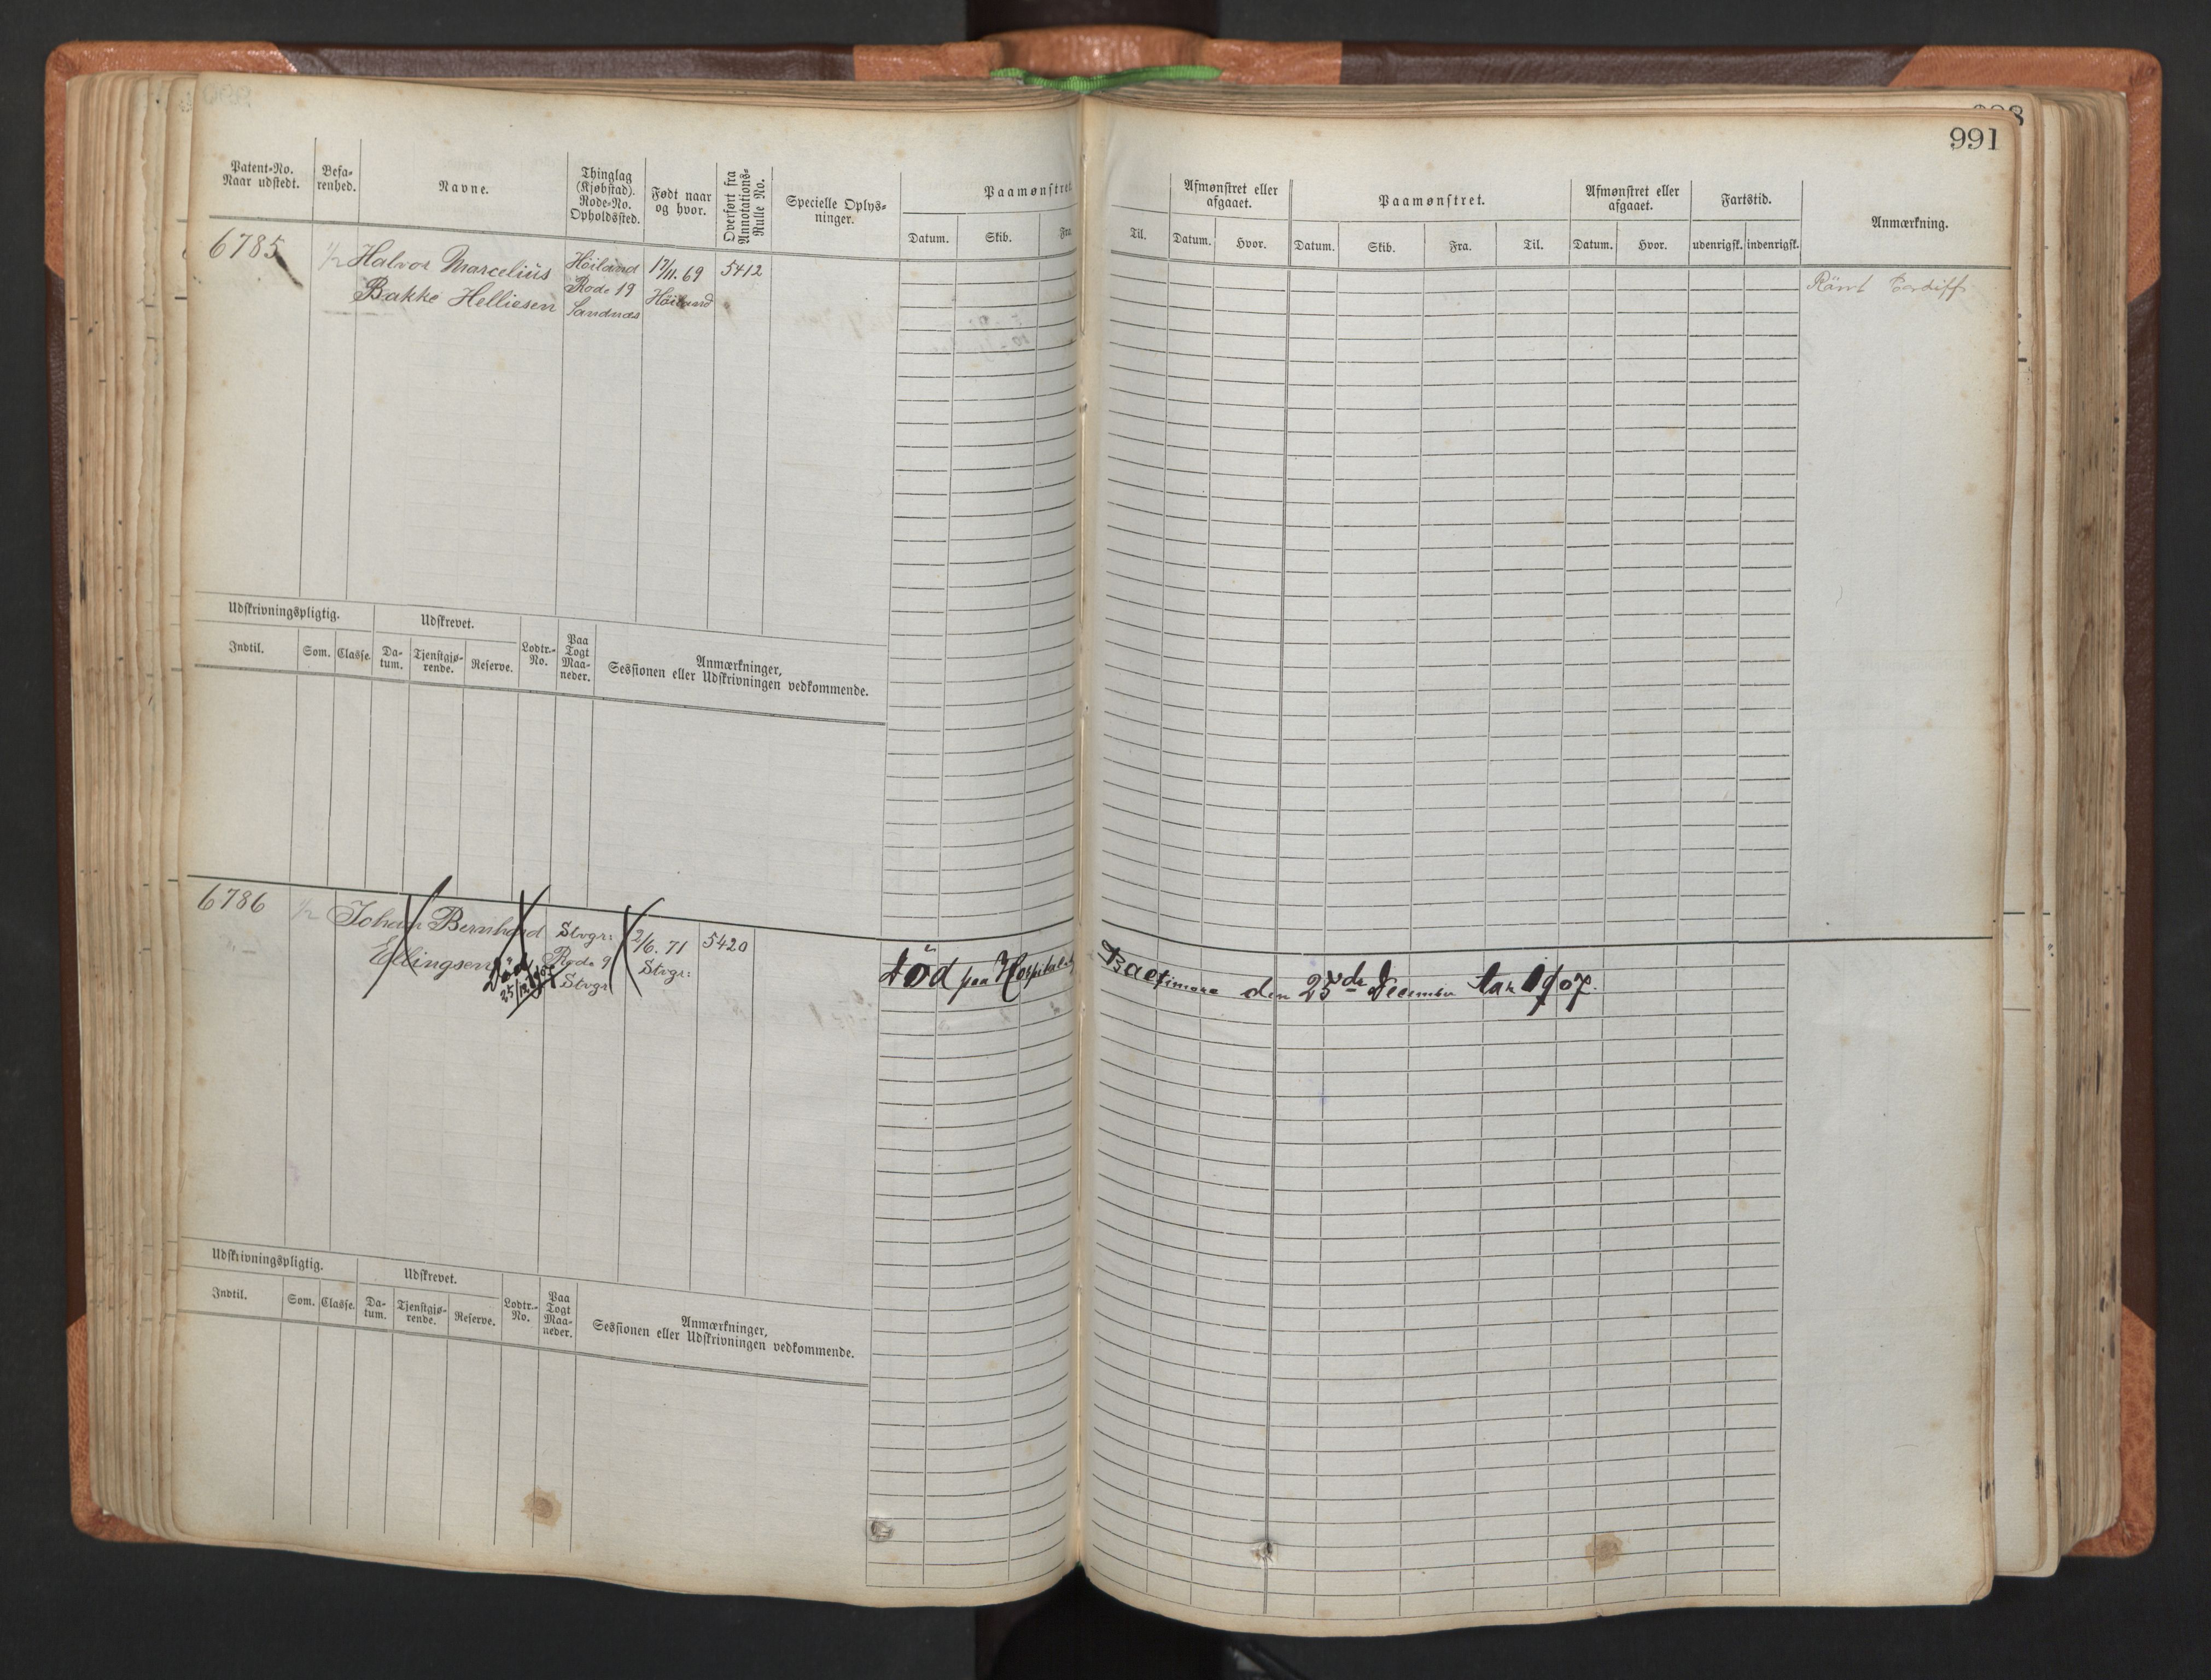 991
Patent-No. Naar udstedt.
Befa-renhed.
Navne.
Thinglag (Kjøbstad). Rode-No. Opholdssted.
Født naar og hvor.
Overført fra Annotations-Rulle No.
Specielle Oplys-ninger.
Paamønstret
Datum. Skib. Fra
Til.
Afmønstret eller afgaaet.
Datum. Hvor.
Paamønstret.
Datum. Skib. Fra. Til.
Afmønstret eller afgaaet.
Datum. Hvor.
Fartstid.
udenrigsk. indenrigsk.
Anmærkning.
6785 1/2 Halvor Marcelius Höiland 17/11.69 5412
Bakke Helliesen Rode 19 Höiland
Sandnæs
Römt Cardiff
Udskrivningspligtig. Udskrevet.
Indtil. Som. Classe. Da-tum. Tjenstgjø-rende. Reserve. Lodtr.-No. Paa Togt Maa-neder. Anmærkninger, Sessionen eller Udskrivningen vedkommende.
6786 1/2 Johan Bernhard Stvgr: 2/6. 71 5420
Ellingsen Rode 9 Stvgr:
Död 25/12 1907 Stvgr
död paa Hospitalet Baltimore den 25de December 1907.
Udskrivningspligtig. Udskrevet.
Indtil. Som. Classe. Da-tum. Tjenstgjø-rende. Reserve. Lodtr.-No. Paa Togt Maa-neder. Anmærkninger, Sessionen eller Udskrivningen vedkommende.